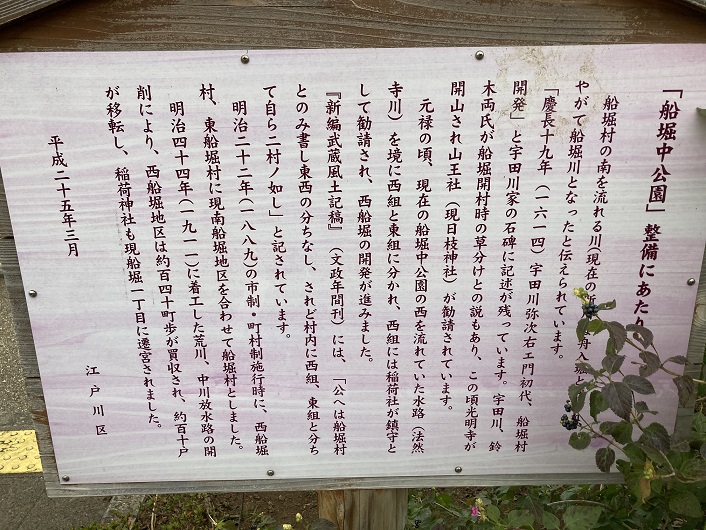 「船堀中公園」整備にあたり
船堀村の南を流れる川(現在の
やがて船堀川となったと伝えられています。
「慶長十九年(一六一四)宇田川弥次右エ門初代、船堀村
開発」と宇田川家の石碑に記述が残っています。宇田川、鈴
木両氏が船堀開村時の草分けとの説もあり、この頃光明寺が
開山され山王社(現日枝神社)が勧請されています。
元禄の頃、現在の船堀中公園の西を流れていた水路(法然
寺川)を境に西組と東組に分かれ、西組には稲荷社が鎮守と
して勧請され、西船堀の開発が進みました。
『新編武蔵風土記稿』(文政年間刊)には、「公へは船堀村
とのみ書し東西の分ちなし、されど村内に西組、東組と分ち
て自ら二村ノ如し」と記されています。
明治二十二年(一八八九)の市制・町村制施行時に、西船堀
村、東船堀村に現南船堀地区を合わせて船堀村としました。
明治四十四年(一九一一)に着工した荒川、中川放水路の開
削により、西船堀地区は約百四十町歩が買収され、約百十戸
が移転し、稲荷神社も現船堀一丁目に遷宮されました。
平成二十五年三月
江戸川区